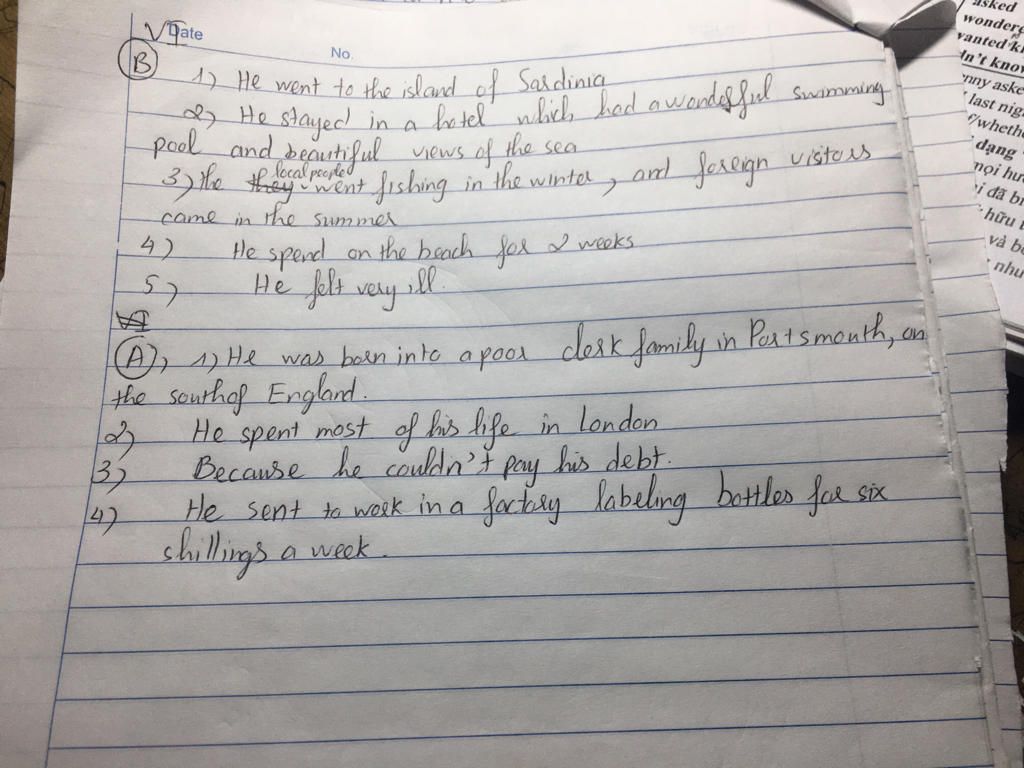 VI Date
No.
B
1) He went to the island of Sardinia
2) He stayed in a hotel which had a wonderful swimming
pool and beautiful views of the sea
3) the they local people went fishing in the winter, and foreign visitors
came in the summer
4) He spend on the beach for 2 weeks
5) He felt very ill.
VI
A), 1) He was born into a poor clerk family in Portsmouth, on
the south of England.
2) He spent most of his life in London
3) Because he couldn't pay his debt.
4) He sent to work in a factory labeling bottles for six
shillings a week.
asked
vanted
n't know
nny aske
last nig
dạng